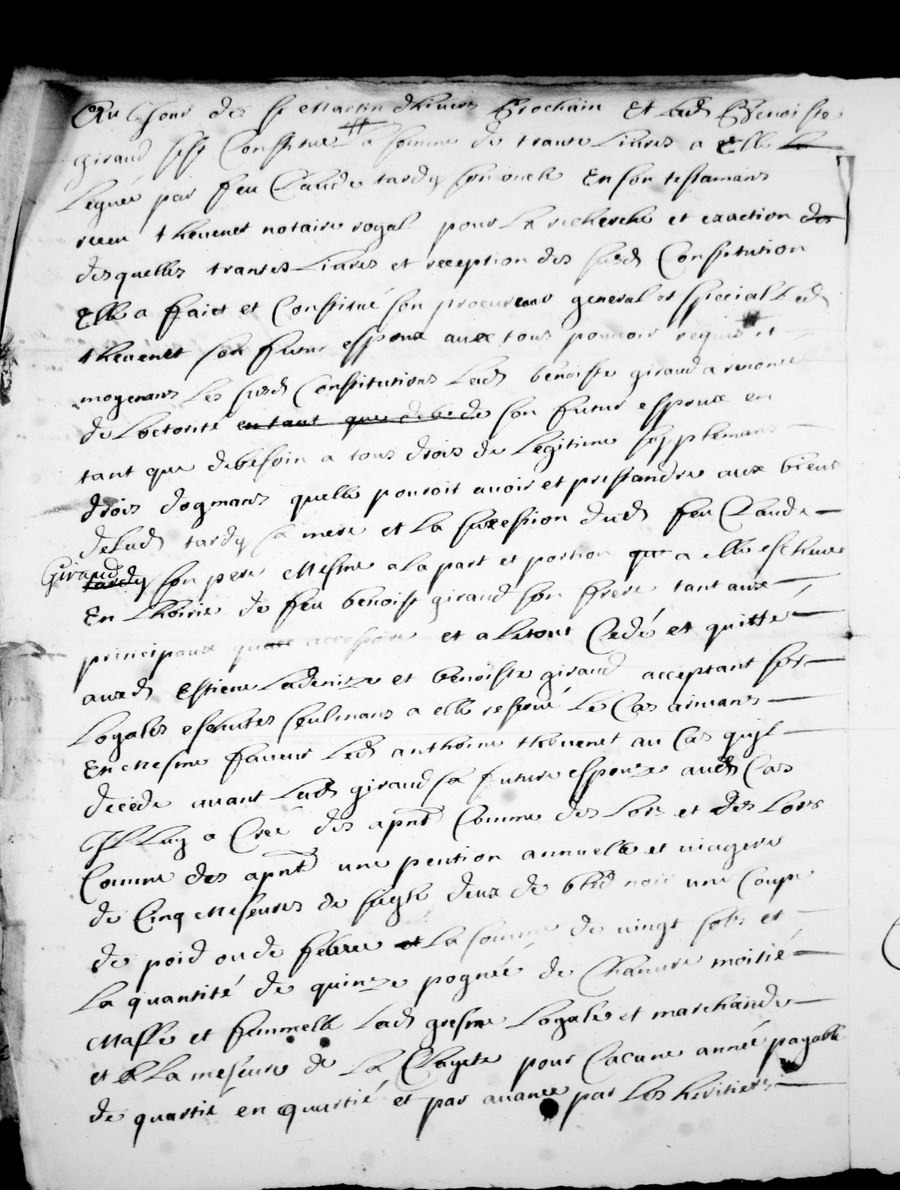 Au Jour de st Martin dhivers Prochain Et lad Benoiste
giraud sest Constitué la somme de trante Livres a Elle La
Leguée par feu Claude tardy son oncle En son testamans
receu thevenet notaire royal pour La recherche et exaction des
desquelles trantes Livres et reception des susd Constitution
Elle a faict et Constitué son procureur general et special Led
thevenet son futur espoux avec tous pouvoir requis et
moyenans Les susd Constitutions Lad benoiste giraud a renoncé
de Loctorité en tant que debede son futur espoux en
tant que debesoin a tous drois de Legitime supplemans
drois dogmans quelle pouroit avoir et prestandre aux biens
de Lad tardy sa mere et La succession dud feu Claude
Giraud tardy son pere Mesme a la part et portion que a elle escheue
En Lhoirie de feu benoist giraud son frere tant aux
principaux que accessoire et a Letout Cedé et quitté
auxd Estiene Ladenize et benoiste giraud acceptant sos
Logales escuttes seulmans a elle reservé Le Cas aivans
En Mesme faveur Led anthoine thevenet au Cas quil
decede avant Lad giraud sa future espouze aud Cas
Il Luy a Créé des apnt Comme des Lors et des Lors
Comme des apnt une pention annuelle et viagere
de Cinq Mesures de seigle deux de bled noir une Coupe
de poid ou de febve et La somme de vingt sols et
La quantité de quinze pognée de Chanvre moitié
Masle et fummelle Lad gresne Logale et marchande
et a La mesure de La Clayete pour Cacune année payable
de quartié en quartié et par avance par Les heritiers